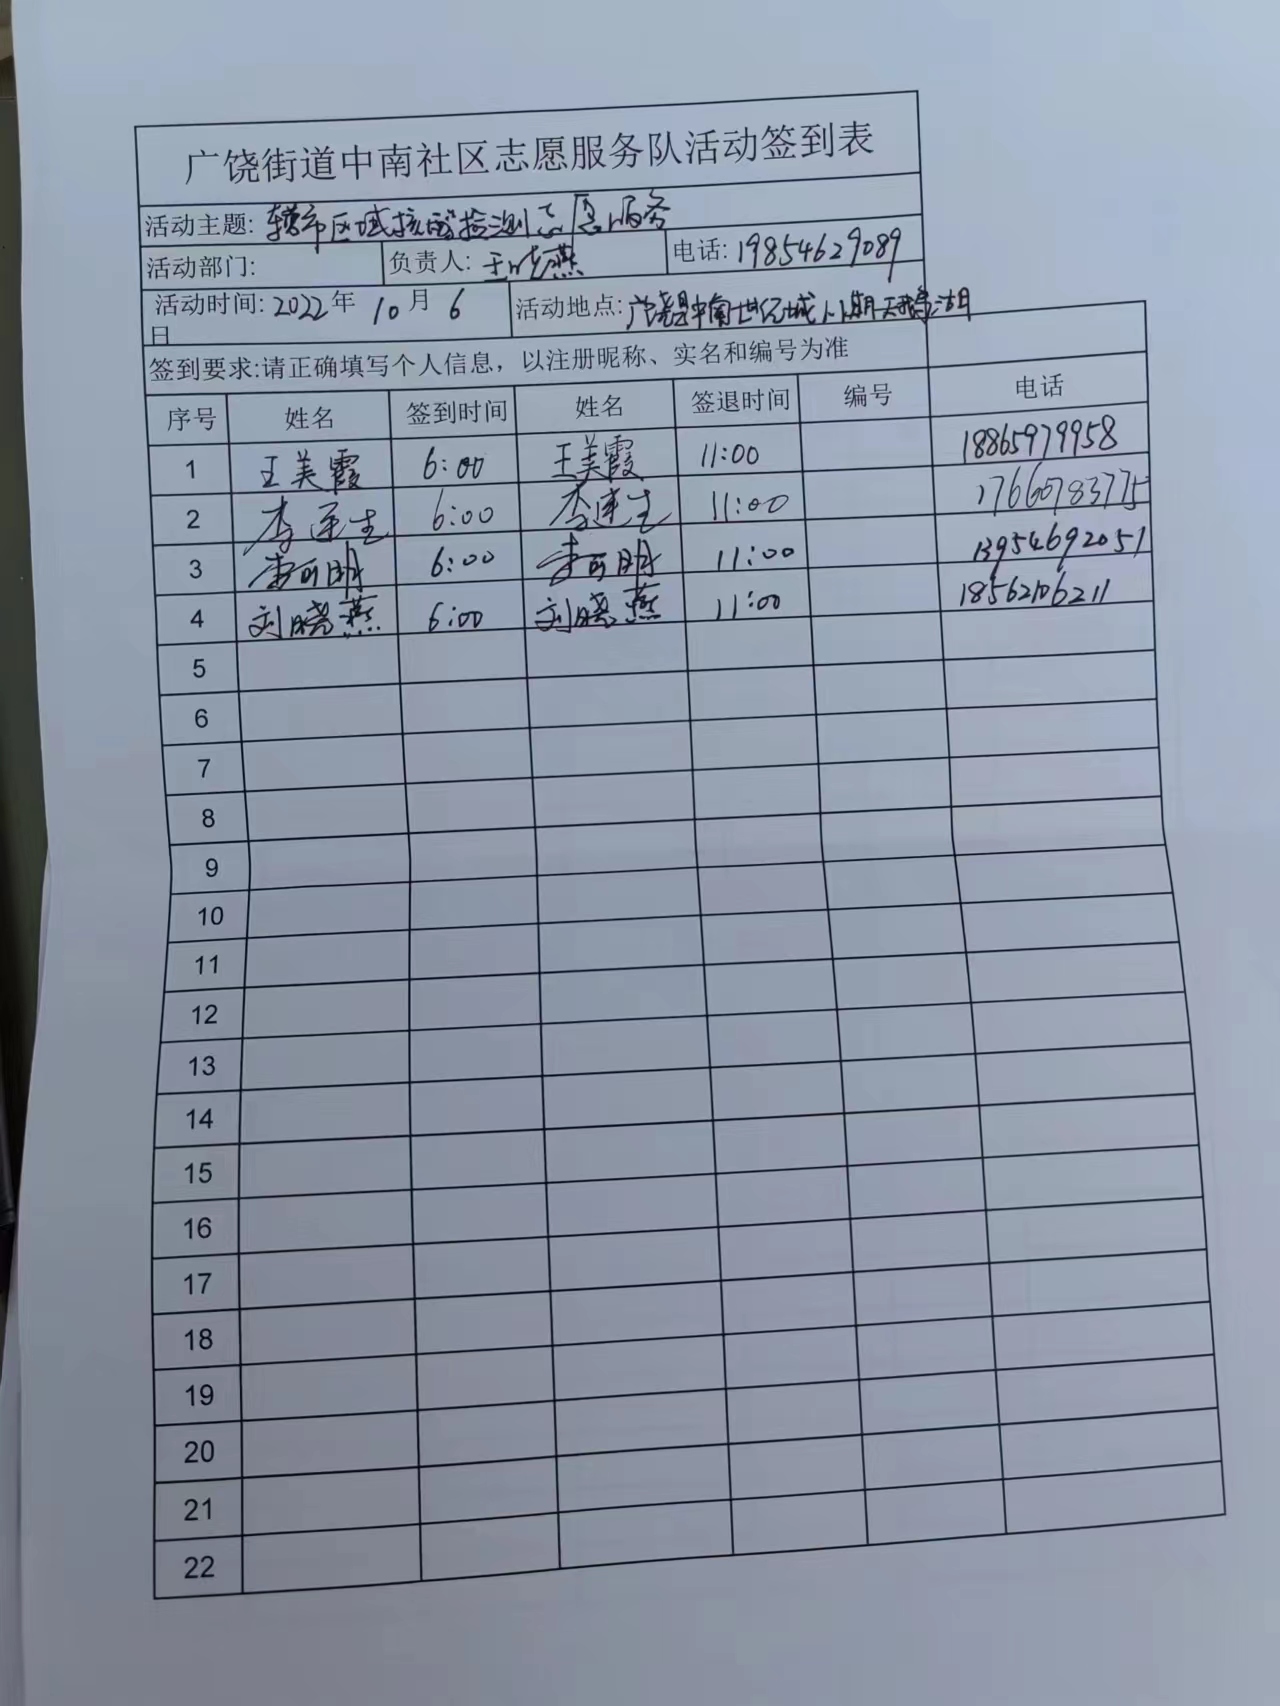 广饶街道中南社区志愿服务队活动签到表
活动主题: 区域核酸检测志愿服务
活动部门: 负责人: 王晓燕 电话: 19854629089
活动时间: 2022年 10月 6日 活动地点: 广饶县中南世纪城八期天鹅湖
签到要求:请正确填写个人信息，以注册昵称、实名和编号为准
序号 姓名 签到时间 姓名 签退时间 编号 电话
1 王美霞 6:00 王美霞 11:00 18865979958
2 李连生 6:00 李连生 11:00 17660783775
3 李可明 6:00 李可明 11:00 13954692051
4 刘晓燕 6:00 刘晓燕 11:00 18562106211
5
6
7
8
9
10
11
12
13
14
15
16
17
18
19
20
21
22